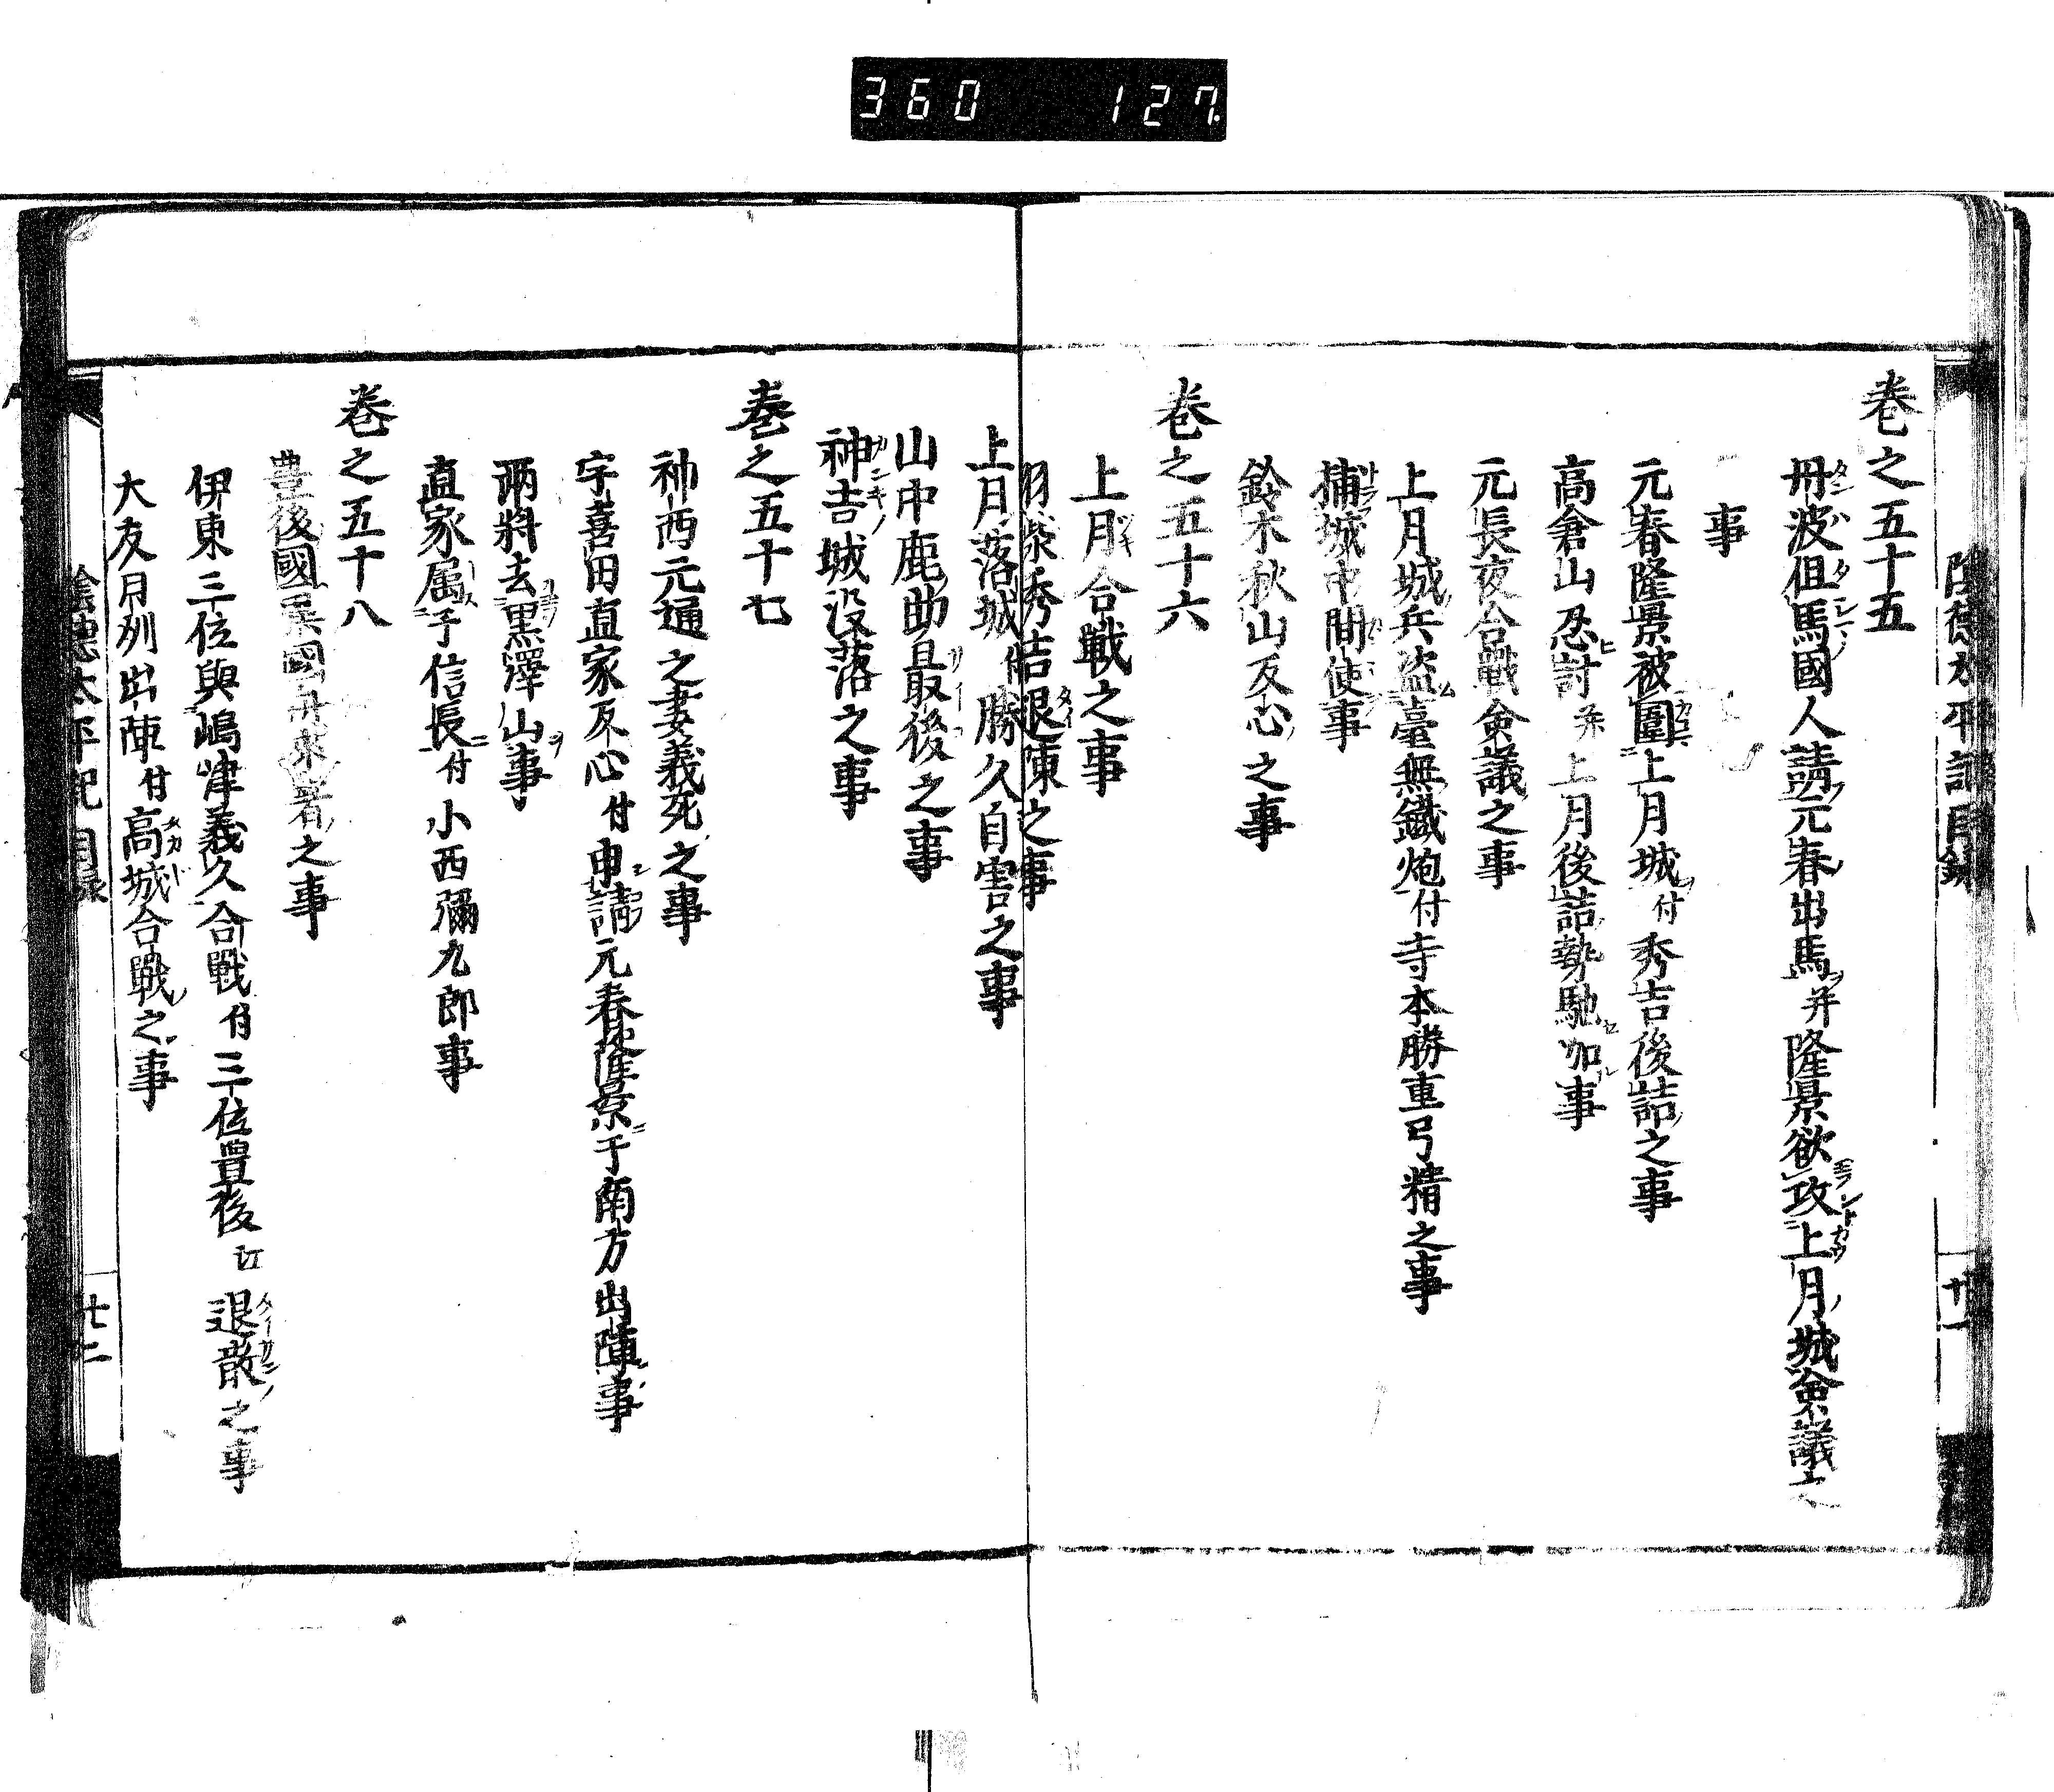 360 127
陰徳太平記目録
廿一
巻之五十五
丹波但馬國人請元春出馬并隆景欲攻上月城僉議之
事
元春隆景被圍上月城付秀吉後詰之事
高倉山忍討并上月後詰勢馳加事
元長夜合戰僉議之事
上月城兵盗臺無鐵炮付寺本勝重弓精之事
捕城中間使事
鈴木秋山反心之事
巻之五十六
上月合戰之事
羽柴秀吉退陳之事
上月落城付勝久自害之事
山中鹿助最後之事
神吉城没落之事
巻之五十七
神西元通之妻義死之事
宇喜田直家反心付申請元春隆景于南方出張事
兩將去黒澤山事
直家属于信長付小西彌九郎事
巻之五十八
豊後國異國舟來著之事
伊東三位與嶋津義久合戰付三位豊後江退散之事
大友日州出陣付高城合戰之事
陰徳太平記目録
廿二